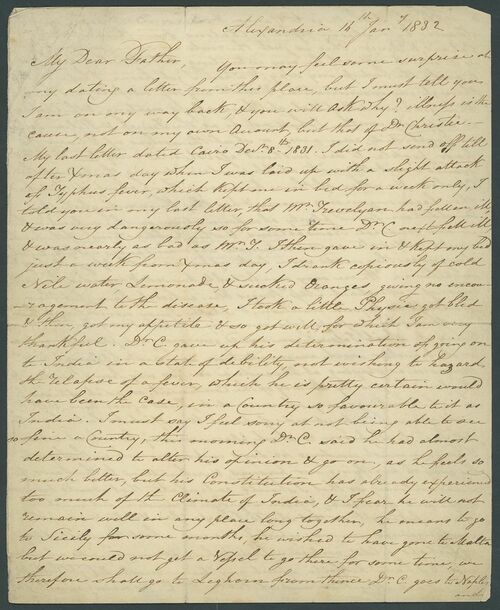 Alexandria 14th Jany 1832
My Dear Father,
You may feel some surprise at
my dating a letter from this place, but I must tell you
I am on my way back, & you will ask why? Illness is the
cause, not on my own Account, but that of Dr. Christie –
My last letter dated Cairo Decr. 8th 1831. I did not send off till
after Xmas day when I was laid up with a slight attack
of Typhus fever, which kept me in bed for a week only, I
told you in my last letter that Mr. Trevelyan had fallen ill
& was very dangerously so for some time Dr. C next fell ill
& was nearly as bad as Mr. T. I then gave in & kept my bed
just a week from Xmas day, I drank copiously of cold
Nile water Lemonade, & sucked Oranges, giving no encou
=ragement to the disease, I took a little Physic got bled
& then got my appetite & so got well, for which I am very
thankful. Dr. C. gave up his determination of going on
to India in a state of debility, not wishing to hazard
the relapse of a fever, which he is pretty certain would
have been the case, in a Country so favourable to it as
India. I must say I feel sorry at not being able to see
so fine a Country, this morning Dr. C. said he had almost
determined to alter his opinion & go on, as he feels so
much better, but his Constitution has already experienced
too much of the Climate of India, & I fear he will not
remain well in any place long together, he means to go
to Sicily for some months, he wished to have gone to Malta
but we could not get a Vessel to go there for some time, we
therefore shall go to Leghorn from thence Dr. C. goes to Naples
and